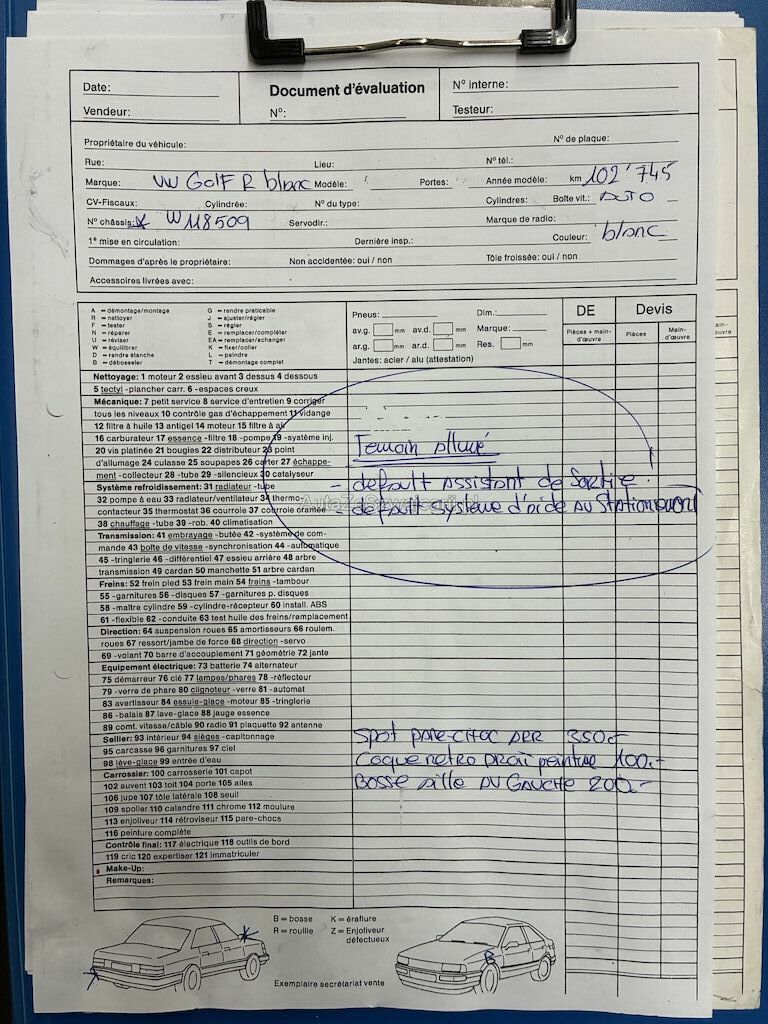 Date:
Document d'évaluation
N° interne:
Vendeur:
N°:
Testeur:
Propriétaire du véhicule:
N° de plaque:
Rue:
Lieu:
N° tél.:
Marque: VW Golf R blanc Modèle: Portes: Année modèle: km 102'745
CV-Fiscaux: Cylindrée: N° du type: Cylindres: Boîte vit.: AUTO
N° châssis: W118509 Servodir.: Marque de radio:
1ᵉ mise en circulation: Dernière insp.: Couleur: blanc
Dommages d'après le propriétaire: Non accidentée: oui / non Tôle froissée: oui / non
Accessoires livrées avec:
A = démontage/montage
R = nettoyer
F = tester
N = réparer
U = réviser
W = équilibrer
D = rendre étanche
B = débosseler
G = rendre praticable
J = ajuster/régler
S = régler
E = remplacer/compléter
EA = remplacer/echanger
K = fixer/coller
L = peindre
T = démontage complet
Pneus: Dim.:
av.g. mm av.d. mm Marque:
ar.g. mm ar.d. mm Res. mm
Jantes: acier / alu (attestation)
DE
Devis
Pièces + main-d'œuvre
Pièces
Main-d'œuvre
Nettoyage: 1 moteur 2 essieu avant 3 dessus 4 dessous
5 tectyl -plancher carr. 6 -espaces creux
Mécanique: 7 petit service 8 service d'entretien 9 corriger
tous les niveaux 10 contrôle gas d'échappement 11 vidange
12 filtre à huile 13 antigel 14 moteur 15 filtre à air
16 carburateur 17 essence -filtre 18 -pompe 19 -système inj.
20 vis platinée 21 bougies 22 distributeur 23 point
d'allumage 24 culasse 25 soupapes 26 carter 27 échappe-
ment -collecteur 28 -tube 29 -silencieux 30 catalyseur
Système refroidissement: 31 radiateur -tube
32 pompe à eau 33 radiateur/ventilateur 34 thermo-
contacteur 35 thermostat 36 courroie 37 courroie crantée
38 chauffage -tube 39 -rob. 40 climatisation
Transmission: 41 embrayage -butée 42 -système de com-
mande 43 boîte de vitesse -synchronisation 44 -automatique
45 -tringlerie 46 -différentiel 47 essieu arrière 48 arbre
transmission 49 cardan 50 manchette 51 arbre cardan
Freins: 52 frein pied 53 frein main 54 freins -tambour
55 -garnitures 56 -disques 57 -garnitures p. disques
58 -maître cylindre 59 -cylindre-récepteur 60 install. ABS
61 -flexible 62 -conduite 63 test huile des freins/remplacement
Direction: 64 suspension roues 65 amortisseurs 66 roulem.
roues 67 ressort/jambe de force 68 direction -servo
69 -volant 70 barre d'accouplement 71 géométrie 72 jante
Equipement électrique: 73 batterie 74 alternateur
75 démarreur 76 clé 77 lampes/phares 78 -réflecteur
79 -verre de phare 80 clignoteur -verre 81 -automat
83 avertisseur 84 essuie-glace -moteur 85 -tringlerie
86 -balais 87 lave-glace 88 jauge essence
89 comt. vitesse/câble 90 radio 91 plaquette 92 antenne
Sellier: 93 intérieur 94 sièges -capitonnage
95 carcasse 96 garnitures 97 ciel
98 lève-glace 99 entrée d'eau
Carrossier: 100 carrosserie 101 capot
102 auvent 103 toit 104 porte 105 ailes
106 jupe 107 tôle latérale 108 seuil
109 spoiler 110 calandre 111 chrome 112 moulure
113 enjoliveur 114 rétroviseur 115 pare-chocs
116 peinture complète
Contrôle final: 117 électrique 118 outils de bord
119 cric 120 expertiser 121 immatriculer
Make-Up:
Remarques:
Temoin allumé
- default Assistant de Sortie.
- default système d'aide au Stationement
Spot pare-choc ARR 350.-
Coque retro Droit peinture 100.-
Bosse aile AV Gauche 200.-
B = bosse K = éraflure
R = rouille Z = Enjoliveur
défectueux
B
Exemplaire secrétariat vente